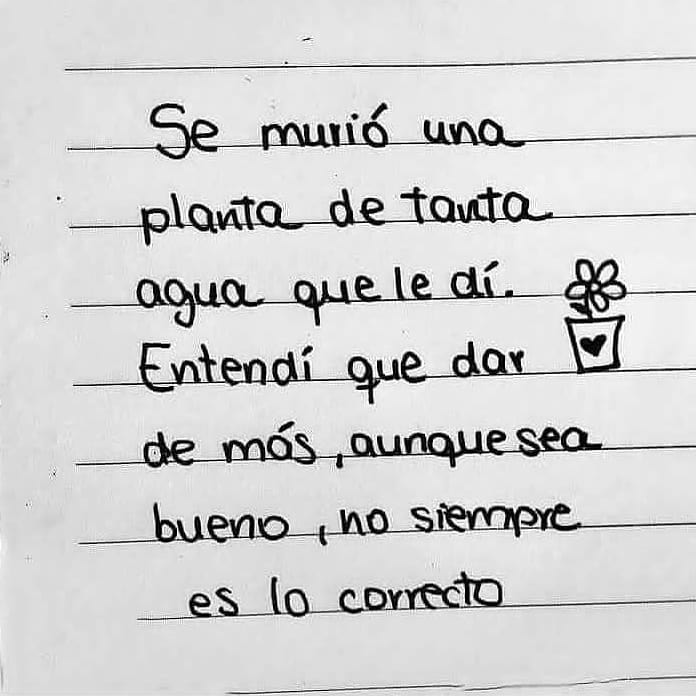 Se murió una
planta de tanta
agua que le dí.
Entendí que dar
de más, aunque sea
bueno, no siempre
es lo correcto